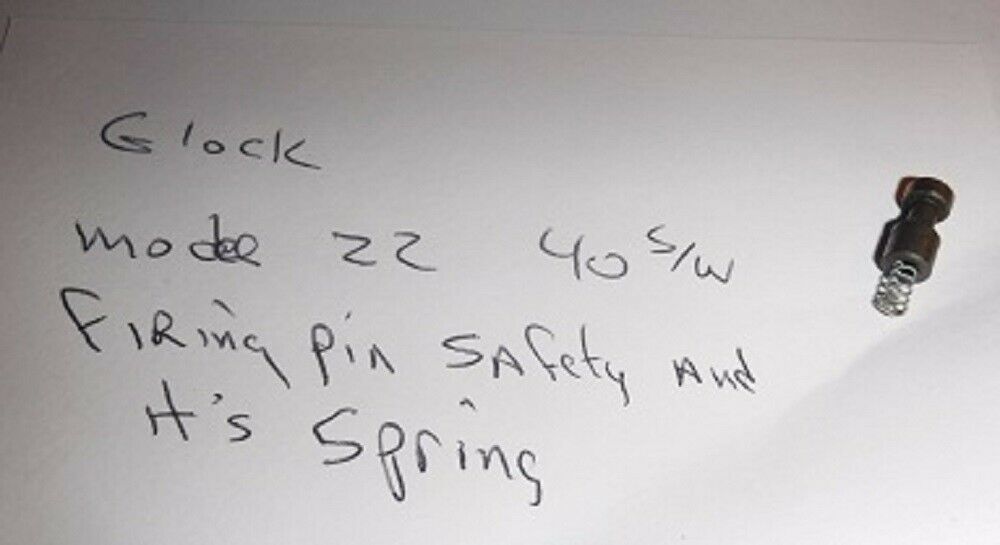 Glock
model 22 40 S/W
Firing pin safety and
it's spring